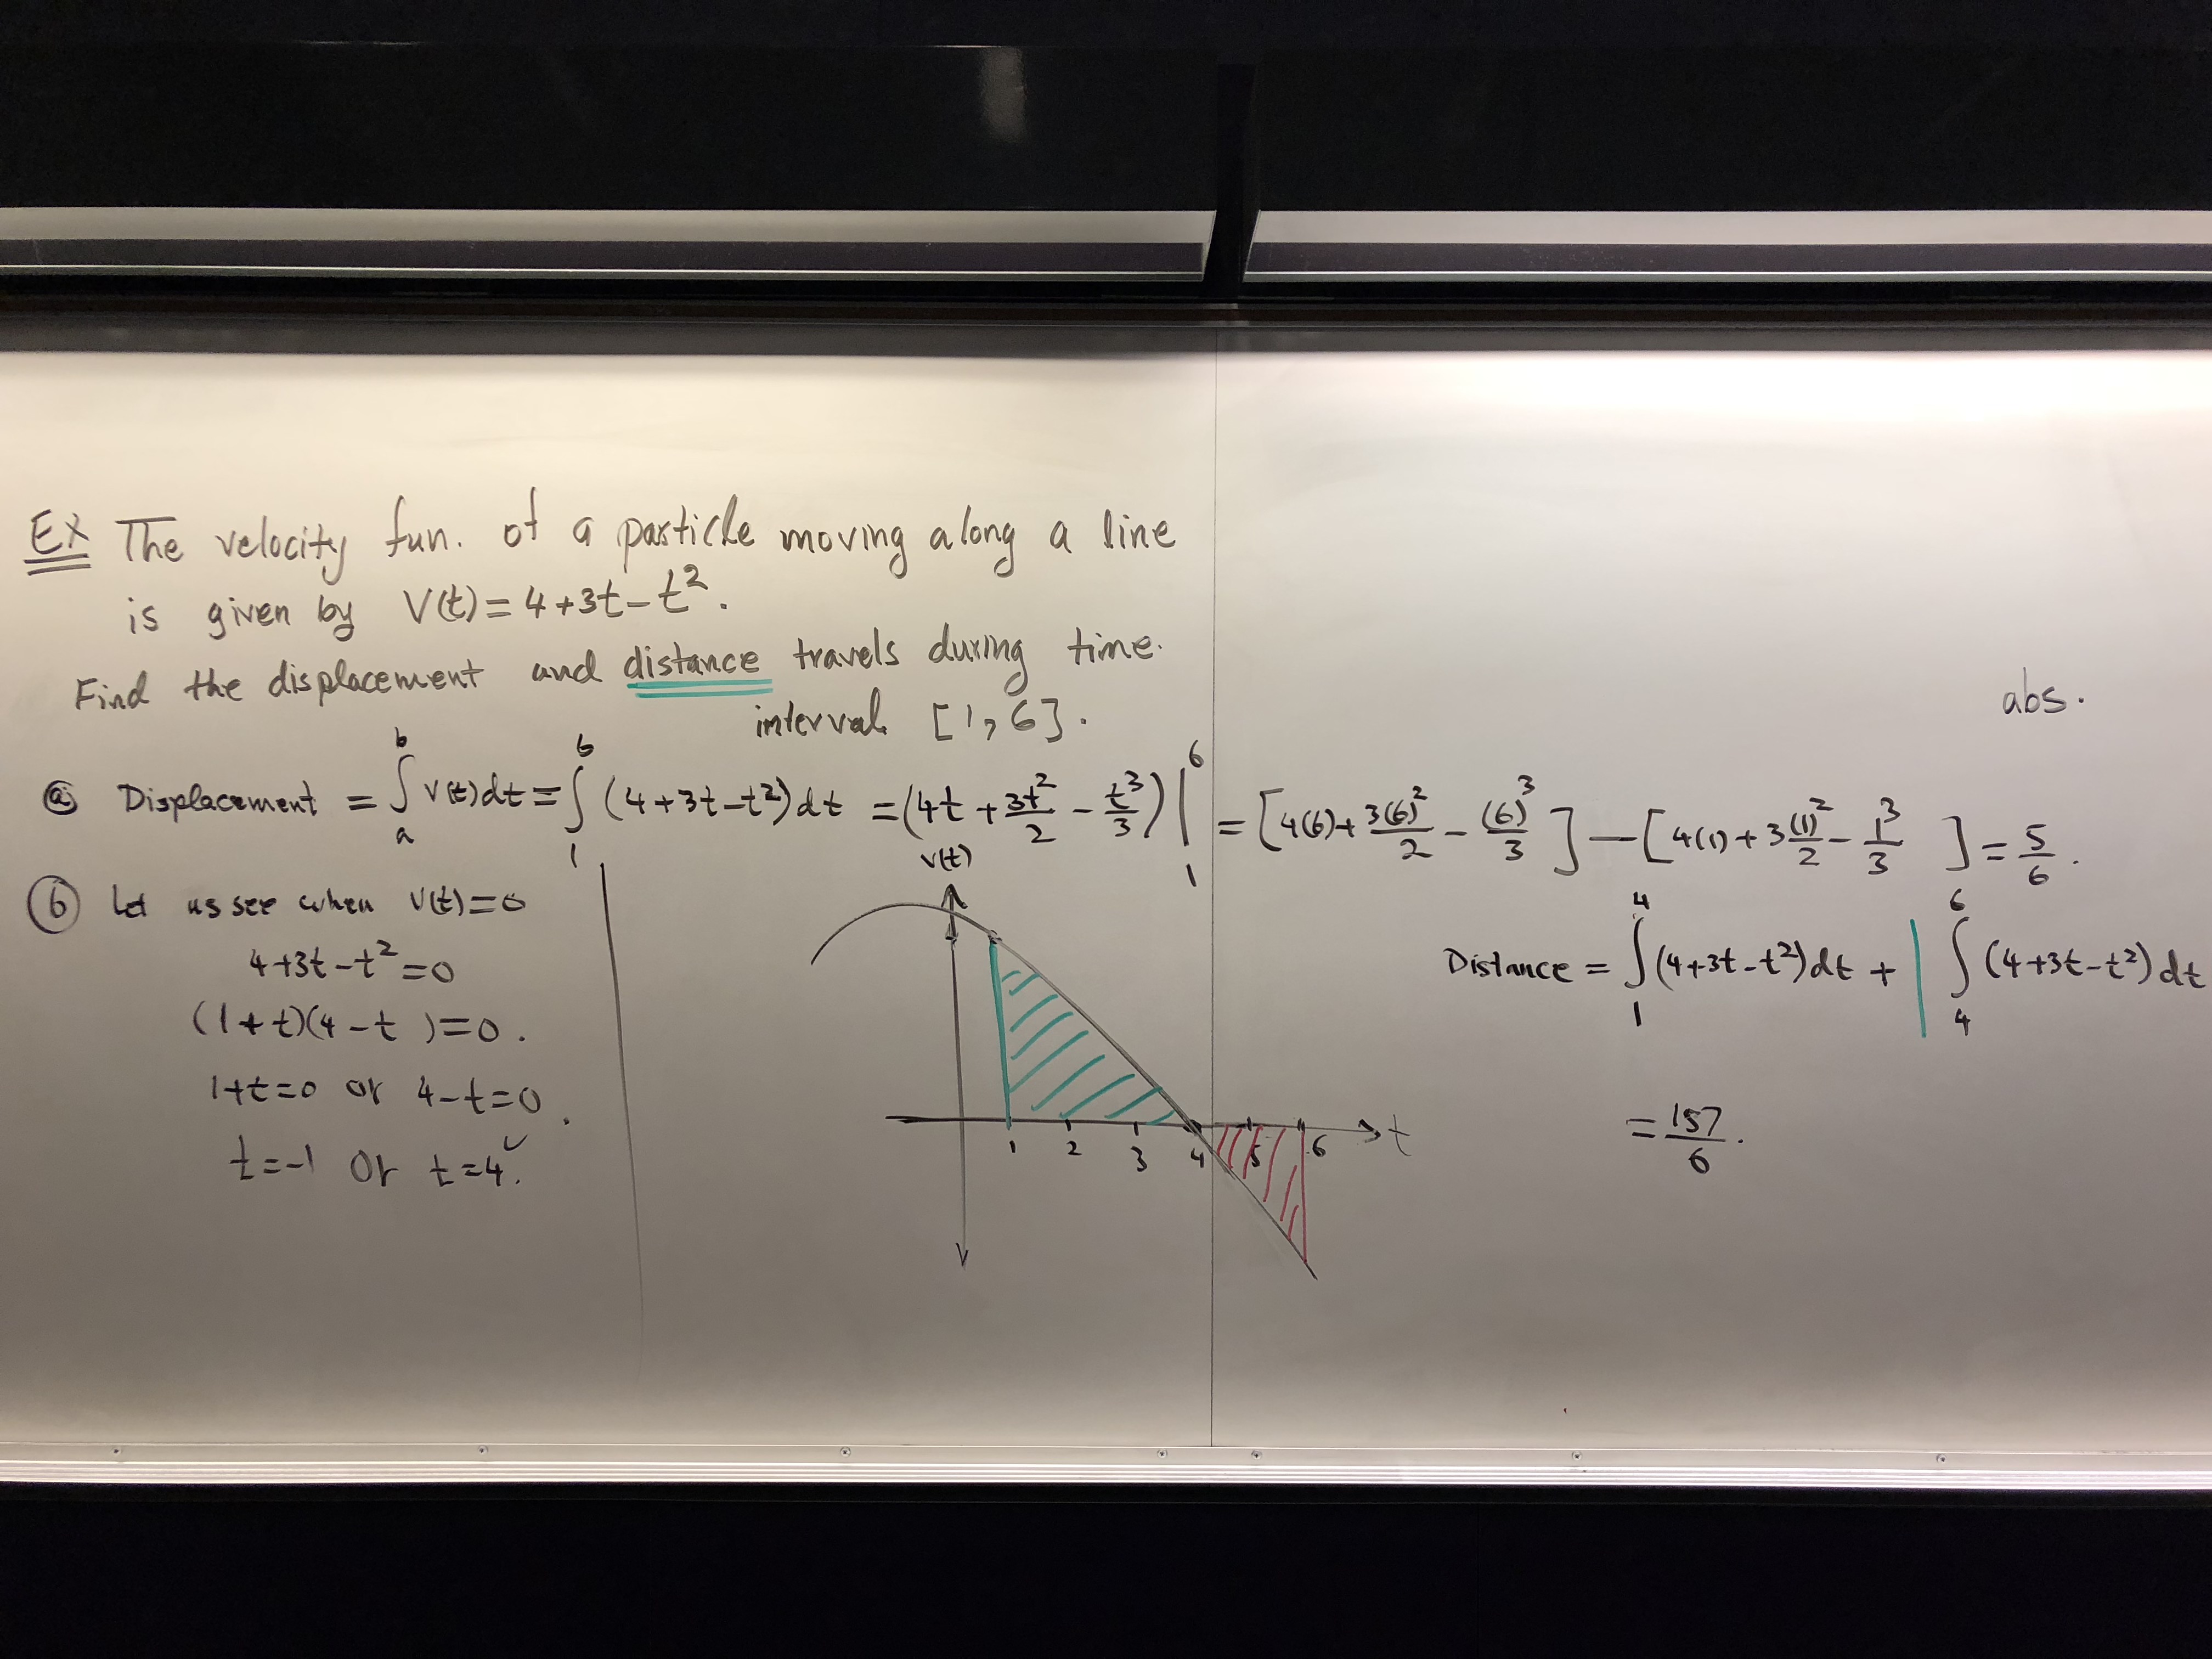 Ex The velocity fun. of a particle moving along a line
is given by V(t) = 4+3t-t².
Find the displacement and distance travels during time.
interval [1,6].
abs.
ⓐ Displacement = ∫_a^b v(t)dt = ∫_1^6 (4+3t-t²)dt = (4t + 3t²/2 - t³/3)|_1^6 = [4(6) + 3(6)²/2 - (6)³/3] - [4(1) + 3(1)²/2 - 1³/3] = 5/6.
ⓑ Let us see when V(t)=0
4+3t-t²=0
(1+t)(4-t)=0.
1+t=0 or 4-t=0.
t=-1 or t=4✓.
v(t)
1 2 3 4 5 6 t
Distance = ∫_1^4 (4+3t-t²)dt + | ∫_4^6 (4+3t-t²)dt
= 157/6.